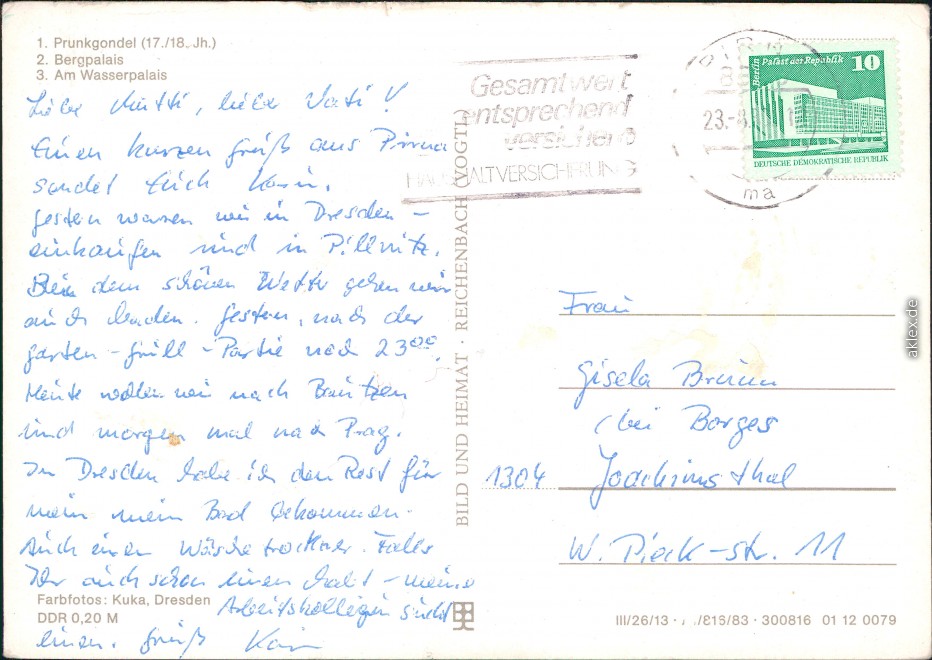 1. Prunkgondel (17./18. Jh.)
2. Bergpalais
3. Am Wasserpalais
Liebe Mutti, liebe Vati!
Einen kurzen Gruß aus Pirna
sendet Euch Karin.
Gestern waren wir in Dresden –
einkaufen und in Pillnitz.
Bei dem schönen Wetter gehen wir
auch baden. Gestern, nach der
Garten-Grill-Partie nach 23⁰⁰.
Heute wollen wir nach Bautzen
und morgen mal nach Prag.
In Dresden habe ich den Rest für
mein Bad bekommen.
Auch einen Wäschetrockner. Falls
Ihr auch schon einen habt – meine
Arbeitskollegin sucht
einen. Gruß Karin
Farbfotos: Kuka, Dresden
DDR 0,20 M
BILD UND HEIMAT · REICHENBACH (VOGTL)
Gesamtwert
entsprechend
versichern
HAUSHALTVERSICHERUNG
23.-8.
ma
Berlin Palast der Republik 10
DEUTSCHE DEMOKRATISCHE REPUBLIK
Frau
Gisela
(bei Borges
1304 Joachimsthal
W. Pieck-str. 11
III/26/13 · 300816 01 12 0079
aklex.de